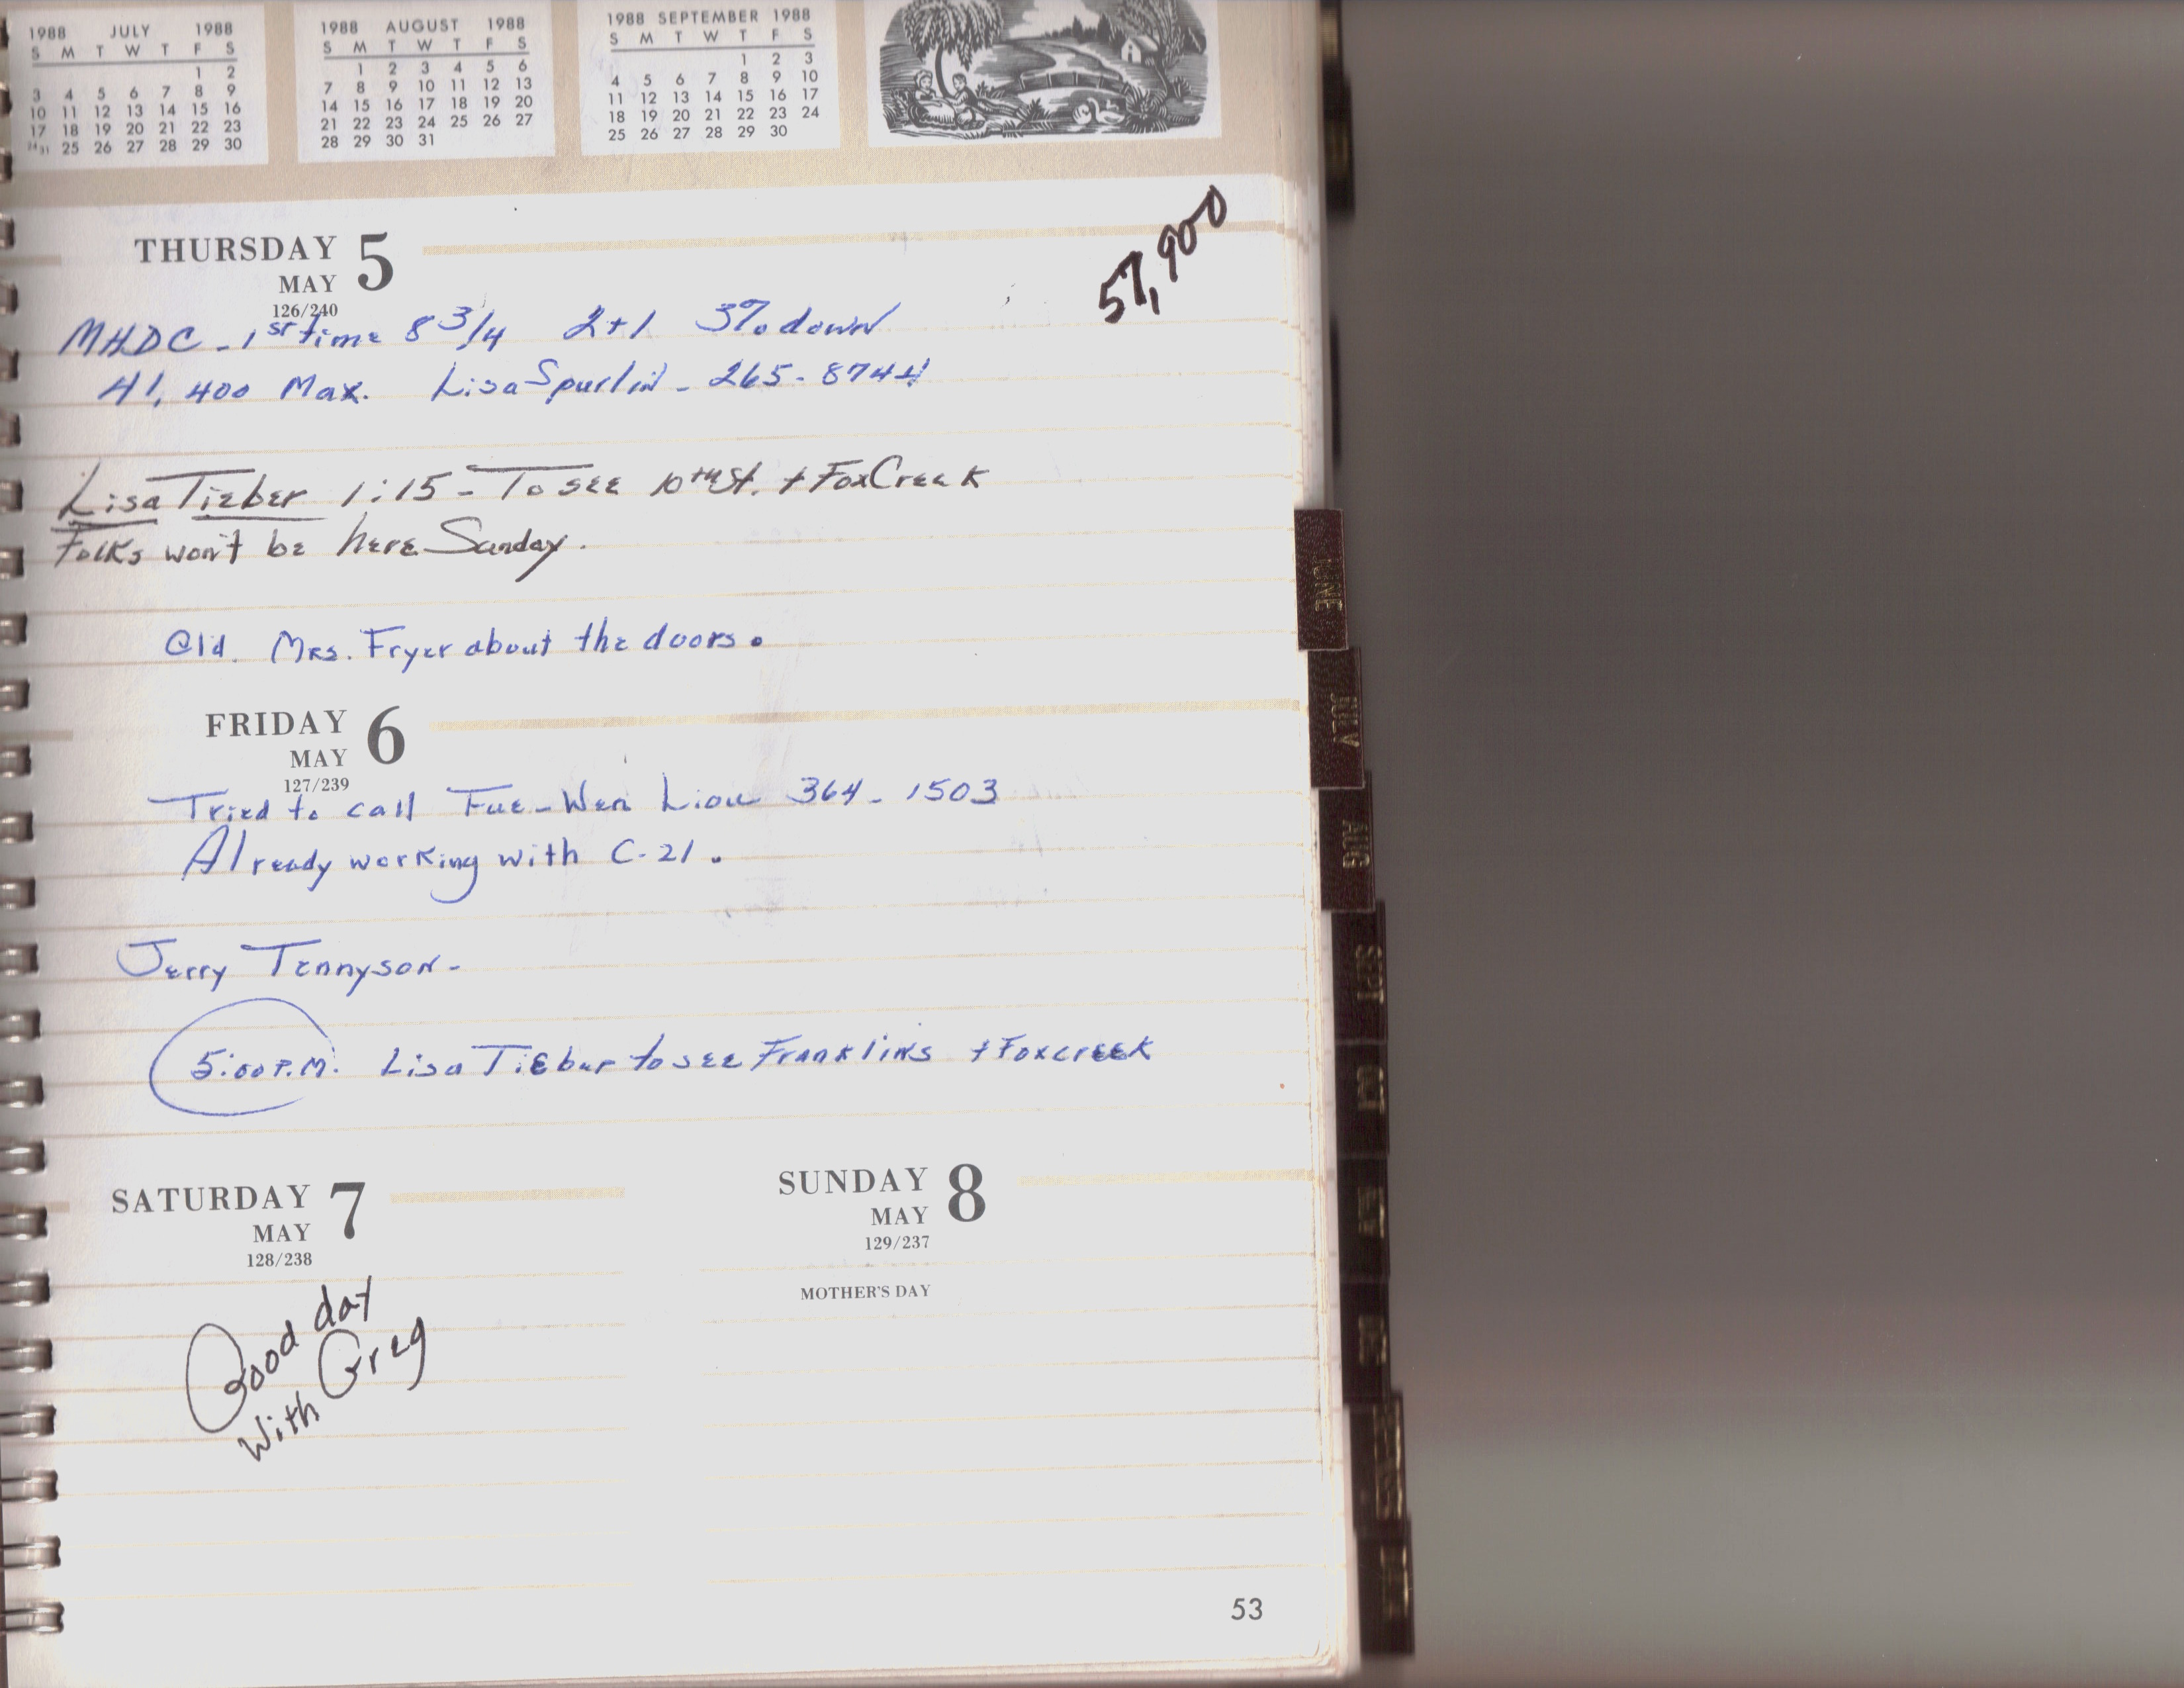 1988 JULY 1988
S M T W T F S
1 2
3 4 5 6 7 8 9
10 11 12 13 14 15 16
17 18 19 20 21 22 23
24/31 25 26 27 28 29 30
1988 AUGUST 1988
S M T W T F S
1 2 3 4 5 6
7 8 9 10 11 12 13
14 15 16 17 18 19 20
21 22 23 24 25 26 27
28 29 30 31
1988 SEPTEMBER 1988
S M T W T F S
1 2 3
4 5 6 7 8 9 10
11 12 13 14 15 16 17
18 19 20 21 22 23 24
25 26 27 28 29 30
THURSDAY 5
MAY
126/240
57,900
MHDC - 1st time 8 3/4 2+1 3% down
41,400 Max. Lisa Spurlin - 265-8744
Lisa Tieber 1:15 - To see 10th St. + FoxCreek
Folks won't be here Sunday.
Cld. Mrs. Fryer about the doors.
FRIDAY 6
MAY
127/239
Tried to call Fue-Wen Liou 364-1503
Already working with C-21.
Jerry Tennyson -
5:00 P.M. Lisa Tieber to see Franklins + Foxcreek
SATURDAY 7
MAY
128/238
Good day
with Greg
SUNDAY 8
MAY
129/237
MOTHER'S DAY
53
JUNE
JULY
AUG
SEPT
OCT